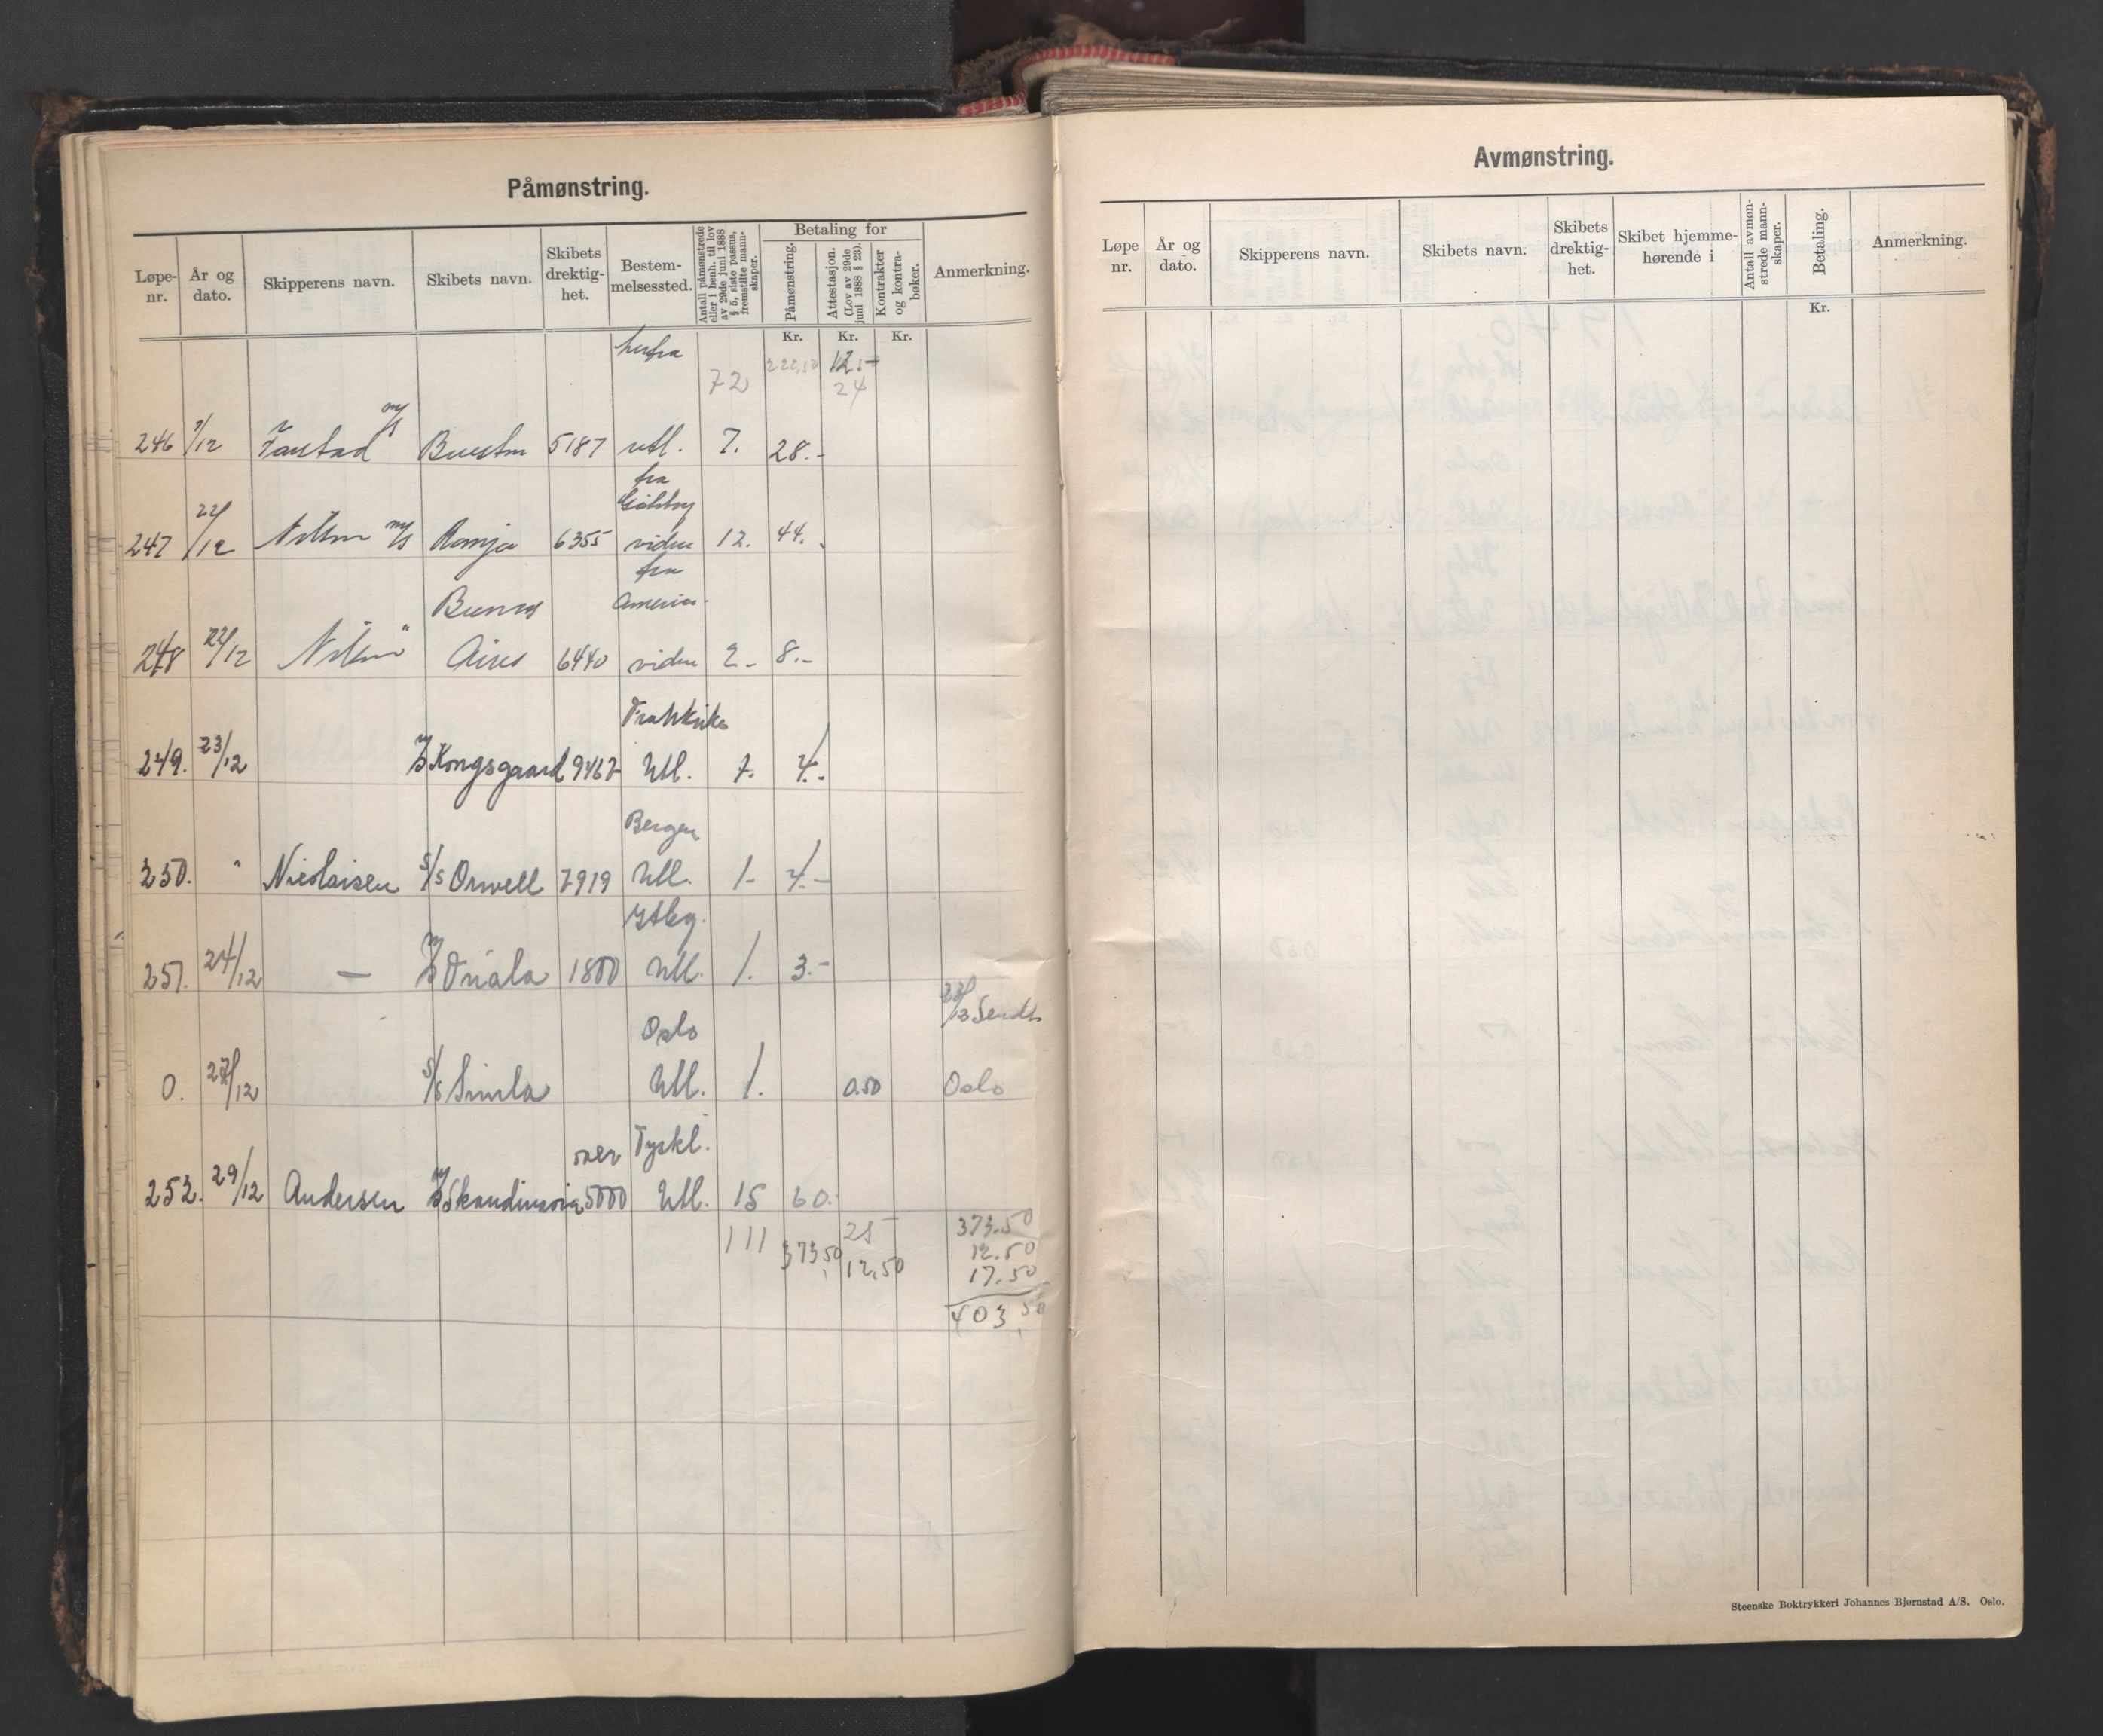 Påmønstring.
Løpe-nr.
År og dato.
Skipperens navn.
Skibets navn.
Skibets drektig-het.
Bestem-melsessted.
Antall påmønstrede eller i henh. til lov av 29de juni 1888 § 5, siste passus, fremstilte mann-skaper.
Betaling for
Påmønstring.
Attestasjon. (Lov av 29de juni 1888 § 23).
Kontrakter og kontra-bøker.
Anmerkning.
Kr. Kr. Kr.
herfra
72 222,50 12.-
24
m/s
246 /12 utl. 7. 28.-
5187
fra
22/12
247 m/s Ronja 6355 12. 44.
fra
Buenos America.
248 22/12 Aires 6440 2- 8.-
249. 23/12 m/s Kongsgaard 9467 Utl. 4.-
Bergen
250. " Nicolaisen s/s Orwell 7919 Utl. 1.- 4.-
251. 24/12 — 1800 Utl. 1. 3.-
Oslo Sendt
0. 27/12 s/s Simla Utl. 1. 0.50 Oslo
over Tyskl.
252. 29/12 Andersen m/s Skandinavia 5000 Utl. 15 60.-
111 373,50 25 373.50
12,50 12.50
17.50
403,50
Avmønstring.
Løpe nr.
År og dato.
Skipperens navn.
Skibets navn.
Skibets drektig-het.
Skibet hjemme-hørende i
Antall avmøn-strede mann-skaper.
Betaling.
Anmerkning.
Kr.
Steenske Boktrykkeri Johannes Bjørnstad A/S. Oslo.